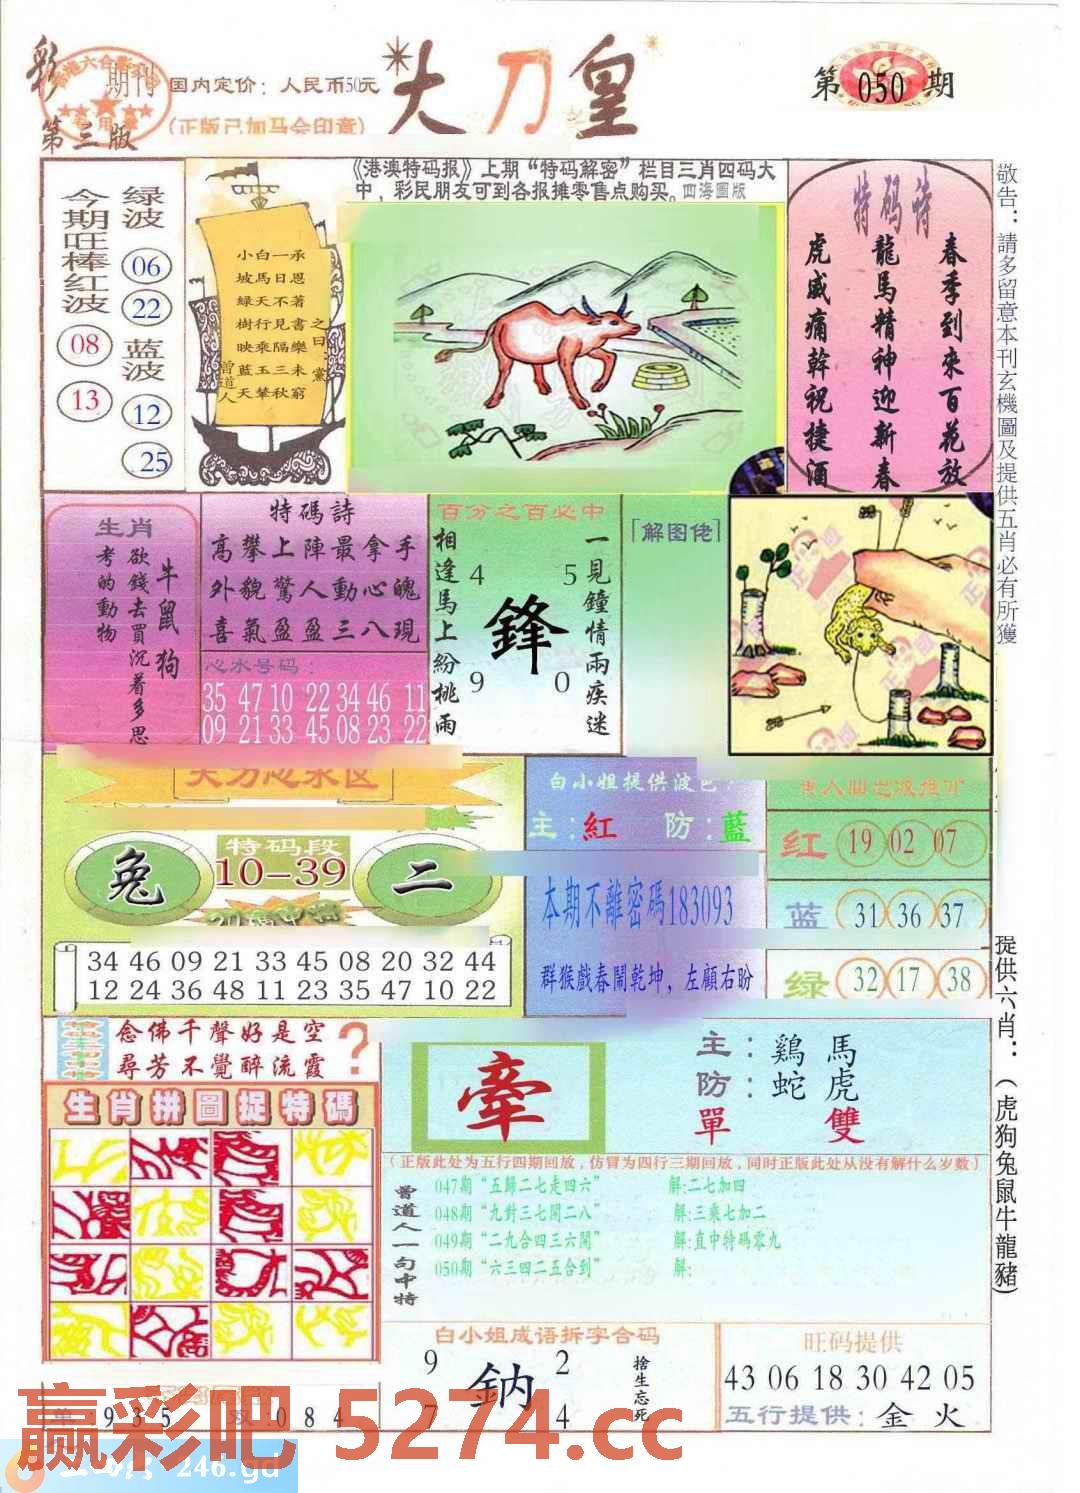 彩
期刊
第三版
国内定价：人民币50元
(正版已加马会印章)
大刀皇
第050期
《港澳特码报》上期“特码解密”栏目三肖四码大
中，彩民朋友可到各报摊零售点购买。四海圖版
今期旺棒红波
08
13
绿波
06
22
蓝波
12
25
小白一承
坡馬日恩
緑天不著
樹行見書之
映乘隔樂曰
藍玉三未黨
天輦秋窮
曾道人
特码诗
春季到來百花放
龍馬精神迎新春
虎威痛幹祝捷酒
敬告：請多留意本刊玄機圖及提供五肖必有所獲
生肖
牛鼠狗
欲錢去買沉着多思
考的動物
特碼詩
高攀上陣最拿手
外貌驚人動心魄
喜氣盈盈三八現
心水号码：
35 47 10 22 34 46 11
09 21 33 45 08 23 22
百分之百必中
一見鐘情兩疾迷
相逢馬上紛桃雨
4 5
鋒
9 0
「解图佬」
特码段
兔
10—39
二
34 46 09 21 33 45 08 20 32 44
12 24 36 48 11 23 35 47 10 22
白小姐提供波色
主:紅 防:藍
本期不離密碼183093
群猴戲春鬧乾坤，左顧右盼
红 19 02 07
蓝 31 36 37
绿 32 17 38
提供六肖：（虎狗兔鼠牛龍豬）
念佛千聲好是空
尋芳不覺醉流霞
?
生肖拼圖捉特碼
牽
主：鷄馬
防：蛇虎
單 雙
（正版此处为五行四期回放，仿冒为四行三期回放，同时正版此处从没有解什么岁数）
曾道人一句中特
047期“五歸二七走四六” 解:二七加四
048期“九對三七開二八” 解:三乘七加二
049期“二九合四三六開” 解:直中特碼零九
050期“六三四二五合到” 解:
白小姐成语拆字合码
9 2
鈉
7 4
捨生忘死
旺码提供
43 06 18 30 42 05
五行提供：金火
单:935 双:084
赢彩吧 5274.cc
246.gd